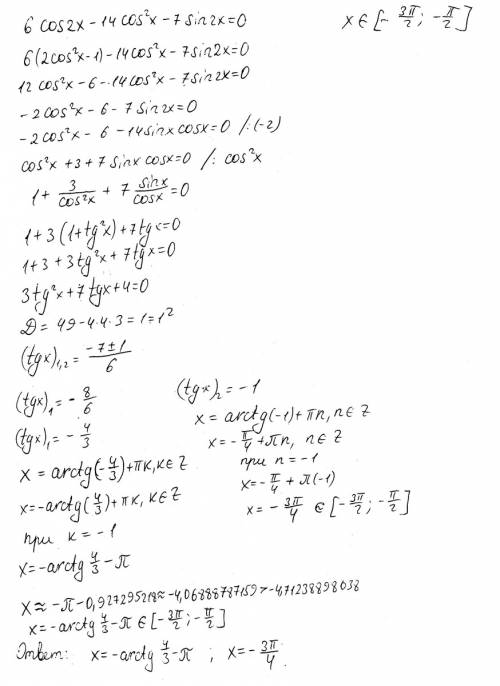 6 cos2x - 14 cos²x - 7 sin2x = 0
x ∈ [-3π/2; -π/2]
6(2cos²x-1) - 14cos²x - 7sin2x = 0
12 cos²x - 6 - 14cos²x - 7sin2x = 0
-2cos²x - 6 - 7 sin2x = 0
-2cos²x - 6 - 14sinx cosx = 0 /:(-2)
cos²x + 3 + 7 sinx cosx = 0 /: cos²x
1 + 3/cos²x + 7 sinx/cosx = 0
1 + 3(1+tg²x) + 7tgx = 0
1 + 3 + 3tg²x + 7tgx = 0
3tg²x + 7tgx + 4 = 0
D = 49 - 4·4·3 = 1 = 1²
(tgx)₁,₂ = (-7±1)/6
(tgx)₁ = -8/6
(tgx)₁ = -4/3
x = arctg(-4/3) + πk, k ∈ Z
x = -arctg(4/3) + πk, k ∈ Z
при k = -1
x = -arctg 4/3 - π
(tgx)₂ = -1
x = arctg(-1) + πn, n ∈ Z
x = -π/4 + πn, n ∈ Z
при n = -1
x = -π/4 + π(-1)
x = -3π/4 ∈ [-3π/2; -π/2]
x ≈ -π - 0,927295218 ≈ -4,06888787159 > -4,71238898038
x = -arctg 4/3 - π ∈ [-3π/2; -π/2]
Ответ: x = -arctg 4/3 - π ; x = -3π/4.